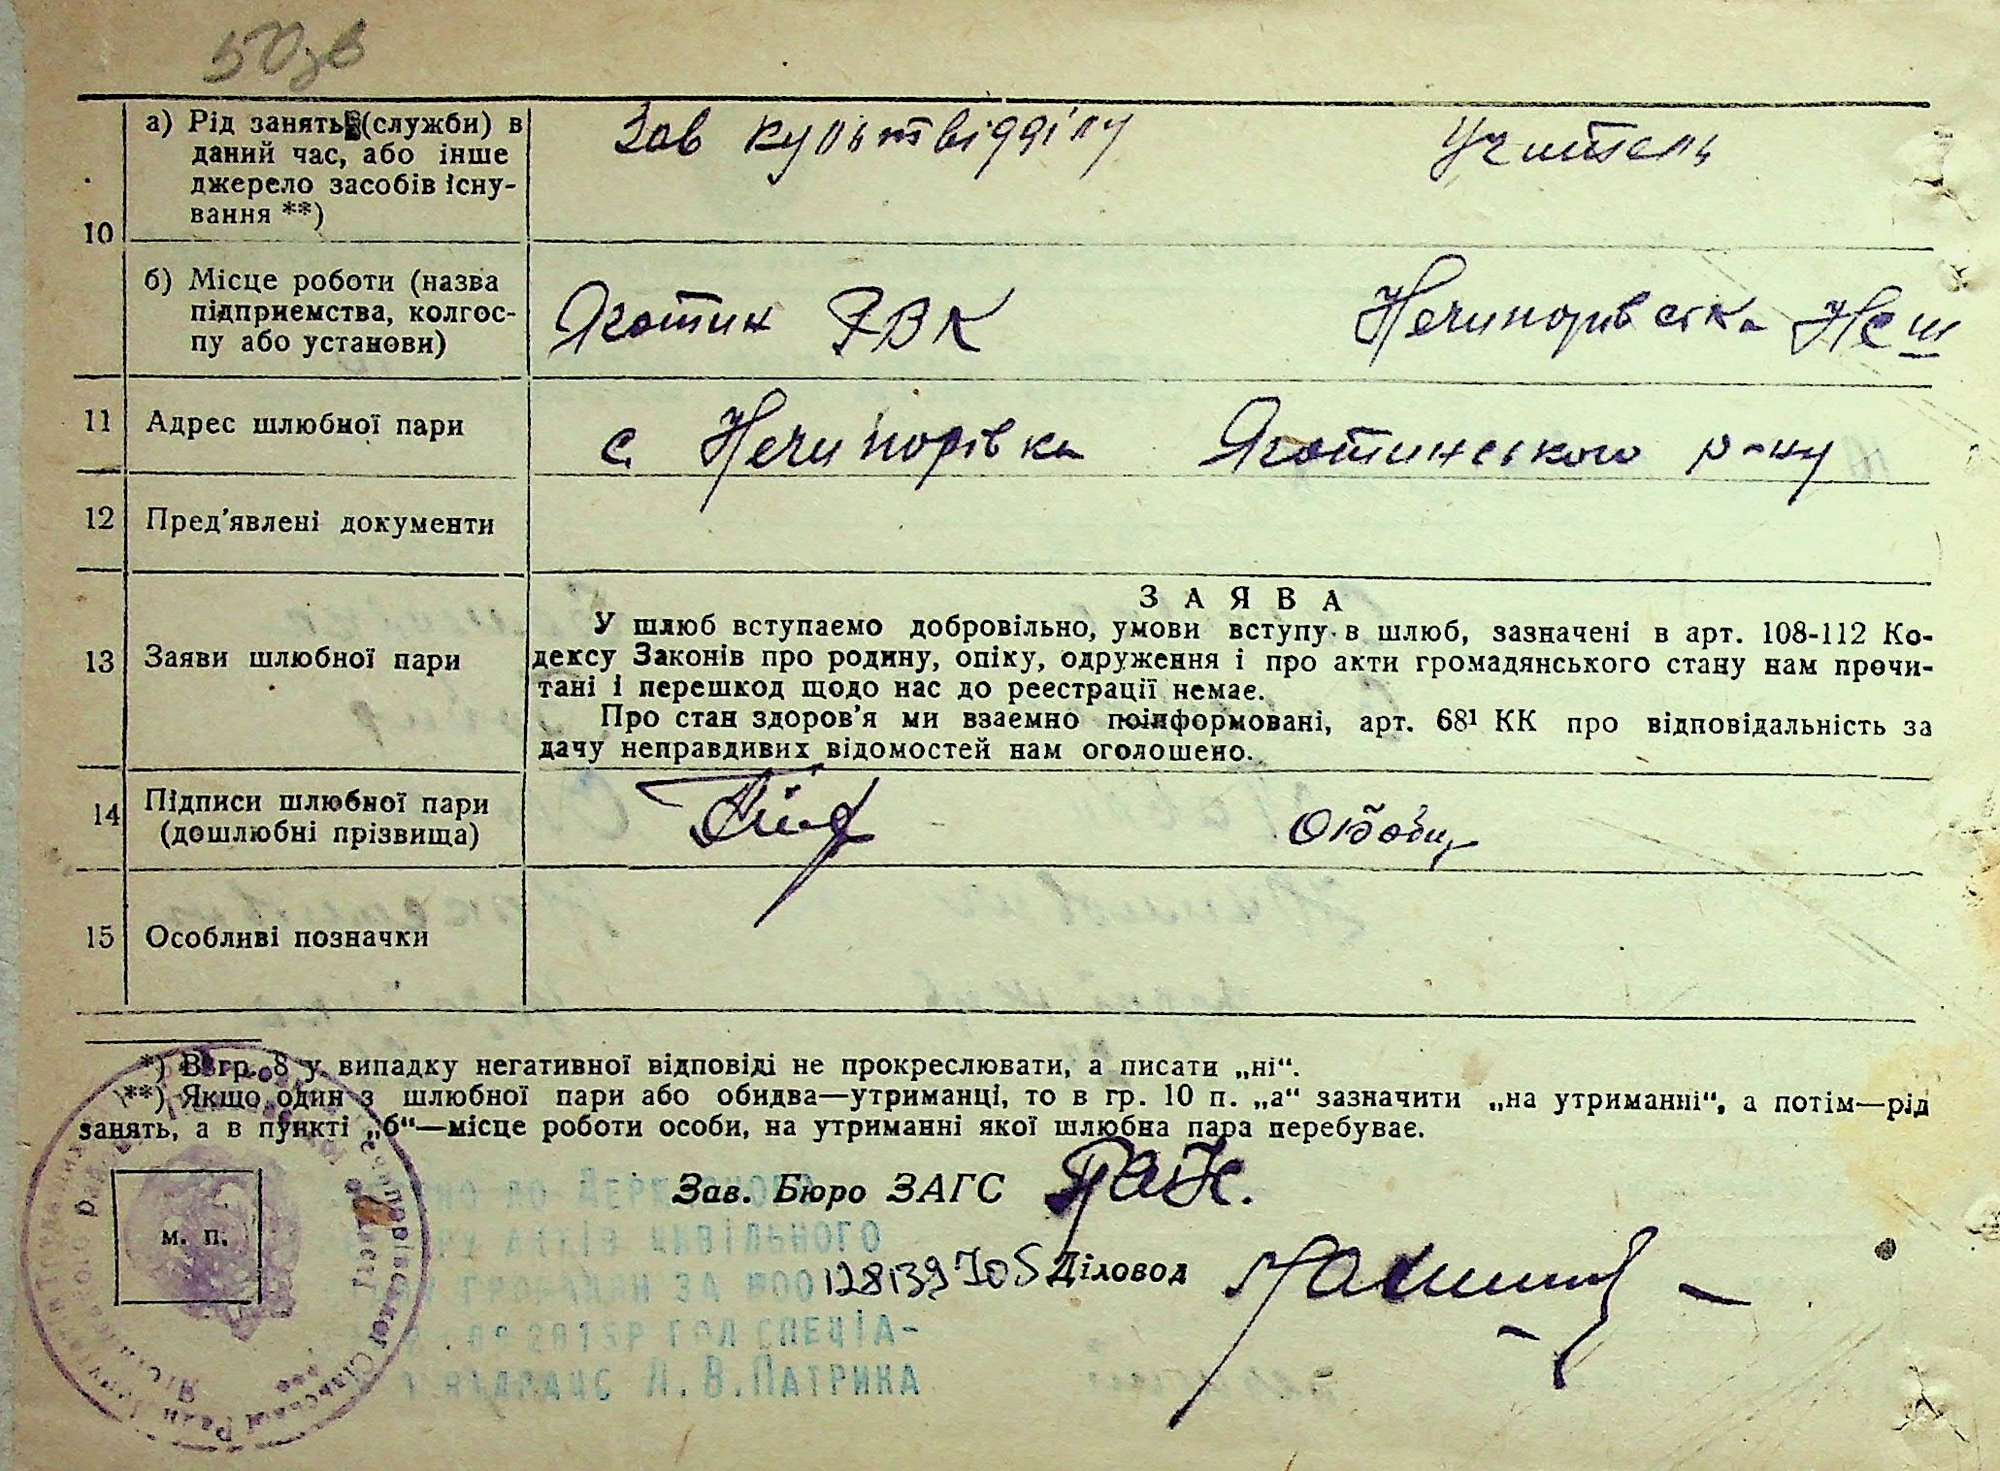 50зв
10
а) Рід занять (служби) в
даний час, або інше
джерело засобів існу-
вання **)
Зав культвідділу
Учитель
б) Місце роботи (назва
підприємства, колгос-
пу або установи)
Яготин РВК
Нечипорівська НСШ
11
Адрес шлюбної пари
с. Нечипорівка Яготинського р-ну
12
Пред'явлені документи
13
Заяви шлюбної пари
ЗАЯВА
У шлюб вступаємо добровільно, умови вступу в шлюб, зазначені в арт. 108-112 Ко-
дексу Законів про родину, опіку, одруження і про акти громадянського стану нам прочи-
тані і перешкод щодо нас до реєстрації немає.
Про стан здоров'я ми взаємно поінформовані, арт. 68¹ КК про відповідальність за
дачу неправдивих відомостей нам оголошено.
14
Підписи шлюбної пари
(дошлюбні прізвища)
15
Особливі позначки
*) В гр. 8 у випадку негативної відповіді не прокреслювати, а писати „ні“.
**) Якщо один з шлюбної пари або обидва—утриманці, то в гр. 10 п. „а“ зазначити „на утриманні“, а потім—рід
занять, а в пункті „б“—місце роботи особи, на утриманні якої шлюбна пара перебуває.
м. п.
Зав. Бюро ЗАГС
ДО ДЕРЖАВНОГО
АКТІВ ЦИВІЛЬНОГО
ГРОМАДЯН ЗА №00128139705
Діловод
2015Р ГОЛ СПЕЦІА-
Л.В.ПАТРИКА